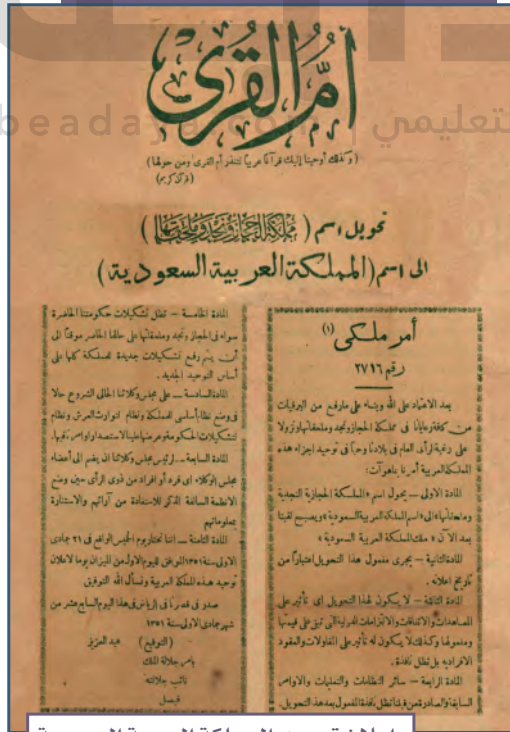 beadaya.com | التعليمي
أم القرى
(وكذلك أوحينا إليك قرآنا عربيا لتنذر أم القرى ومن حولها)
(قرآن كريم)
تحويل اسم (مملكة الحجاز ونجد وملحقاتها)
الى اسم (المملكة العربية السعودية)
أمر ملكي (١)
رقم ٢٧١٦
بعد الاعتماد على الله وبناء على مارفع من البرقيات
من كافة رعايانا في مملكة الحجاز ونجد وملحقاتها ونزولا
على رغبة الرأى العام في بلادنا وحبا في توحيد اجزاء هذه
المملكة العربية أمرنا بماهو آت:
المادة الاولى — يحول اسم «المملكة الحجازية النجدية
وملحقاتها» الى «اسم المملكة العربية السعودية» ويصبح لقبنا
بعد الآن «ملك المملكة العربية السعودية»
المادة الثانية — يجرى مفعول هذا التحويل اعتبارا من
تاريخ اعلانه.
المادة الثالثة — لا يكون لهذا التحويل اى تأثير على
المعاهدات والاتفاقات والالتزامات الدولية التى تبقى على قيمتها
ومفعولها وكذلك لا يكون له تأثير على المقاولات والعقود
الافرادية بل تظل نافذة.
المادة الرابعة — سائر النظامات والتعليمات والاوامر
السابقة والصادرة من قبلنا تظل نافذة المفعول بعد هذا التحويل.
المادة الخامسة — تظل تشكيلات حكومتنا الحاضرة
سواء في الحجاز ونجد وملحقاتها على حالها الحاضر موقتا الى
أن يتم وضع تشكيلات جديدة للمملكة كلها على
أساس التوحيد الجديد.
المادة السادسة — على مجلس وكلائنا الحالى الشروع حالا
في وضع نظام أساسى للمملكة ونظام لتوارث العرش ونظام
لتشكيلات الحكومة وعرضها علينا لاستصدار اوامرنا فيها.
المادة السابعة — لرئيس مجلس وكلائنا ان يضم الى أعضاء
مجلس الوكلاء اى فرد أو افراد من ذوى الرأى حين وضع
الانظمة السالفة الذكر للاستفادة من آرائهم والاستنارة
بمعلوماتهم
المادة الثامنة — اننا نختار يوم الخميس الواقع في ٢١ جمادى
الاولى سنة ١٣٥١ الموافق لليوم الاول من الميزان يوما لاعلان
توحيد هذه المملكة العربية ونسأل الله التوفيق
صدر في قصرنا في الرياض في هذا اليوم السابع عشر من
شهر جمادى الاولى سنة ١٣٥١
(التوقيع) عبد العزيز
بامر جلالة الملك
نائب جلالته
فيصل